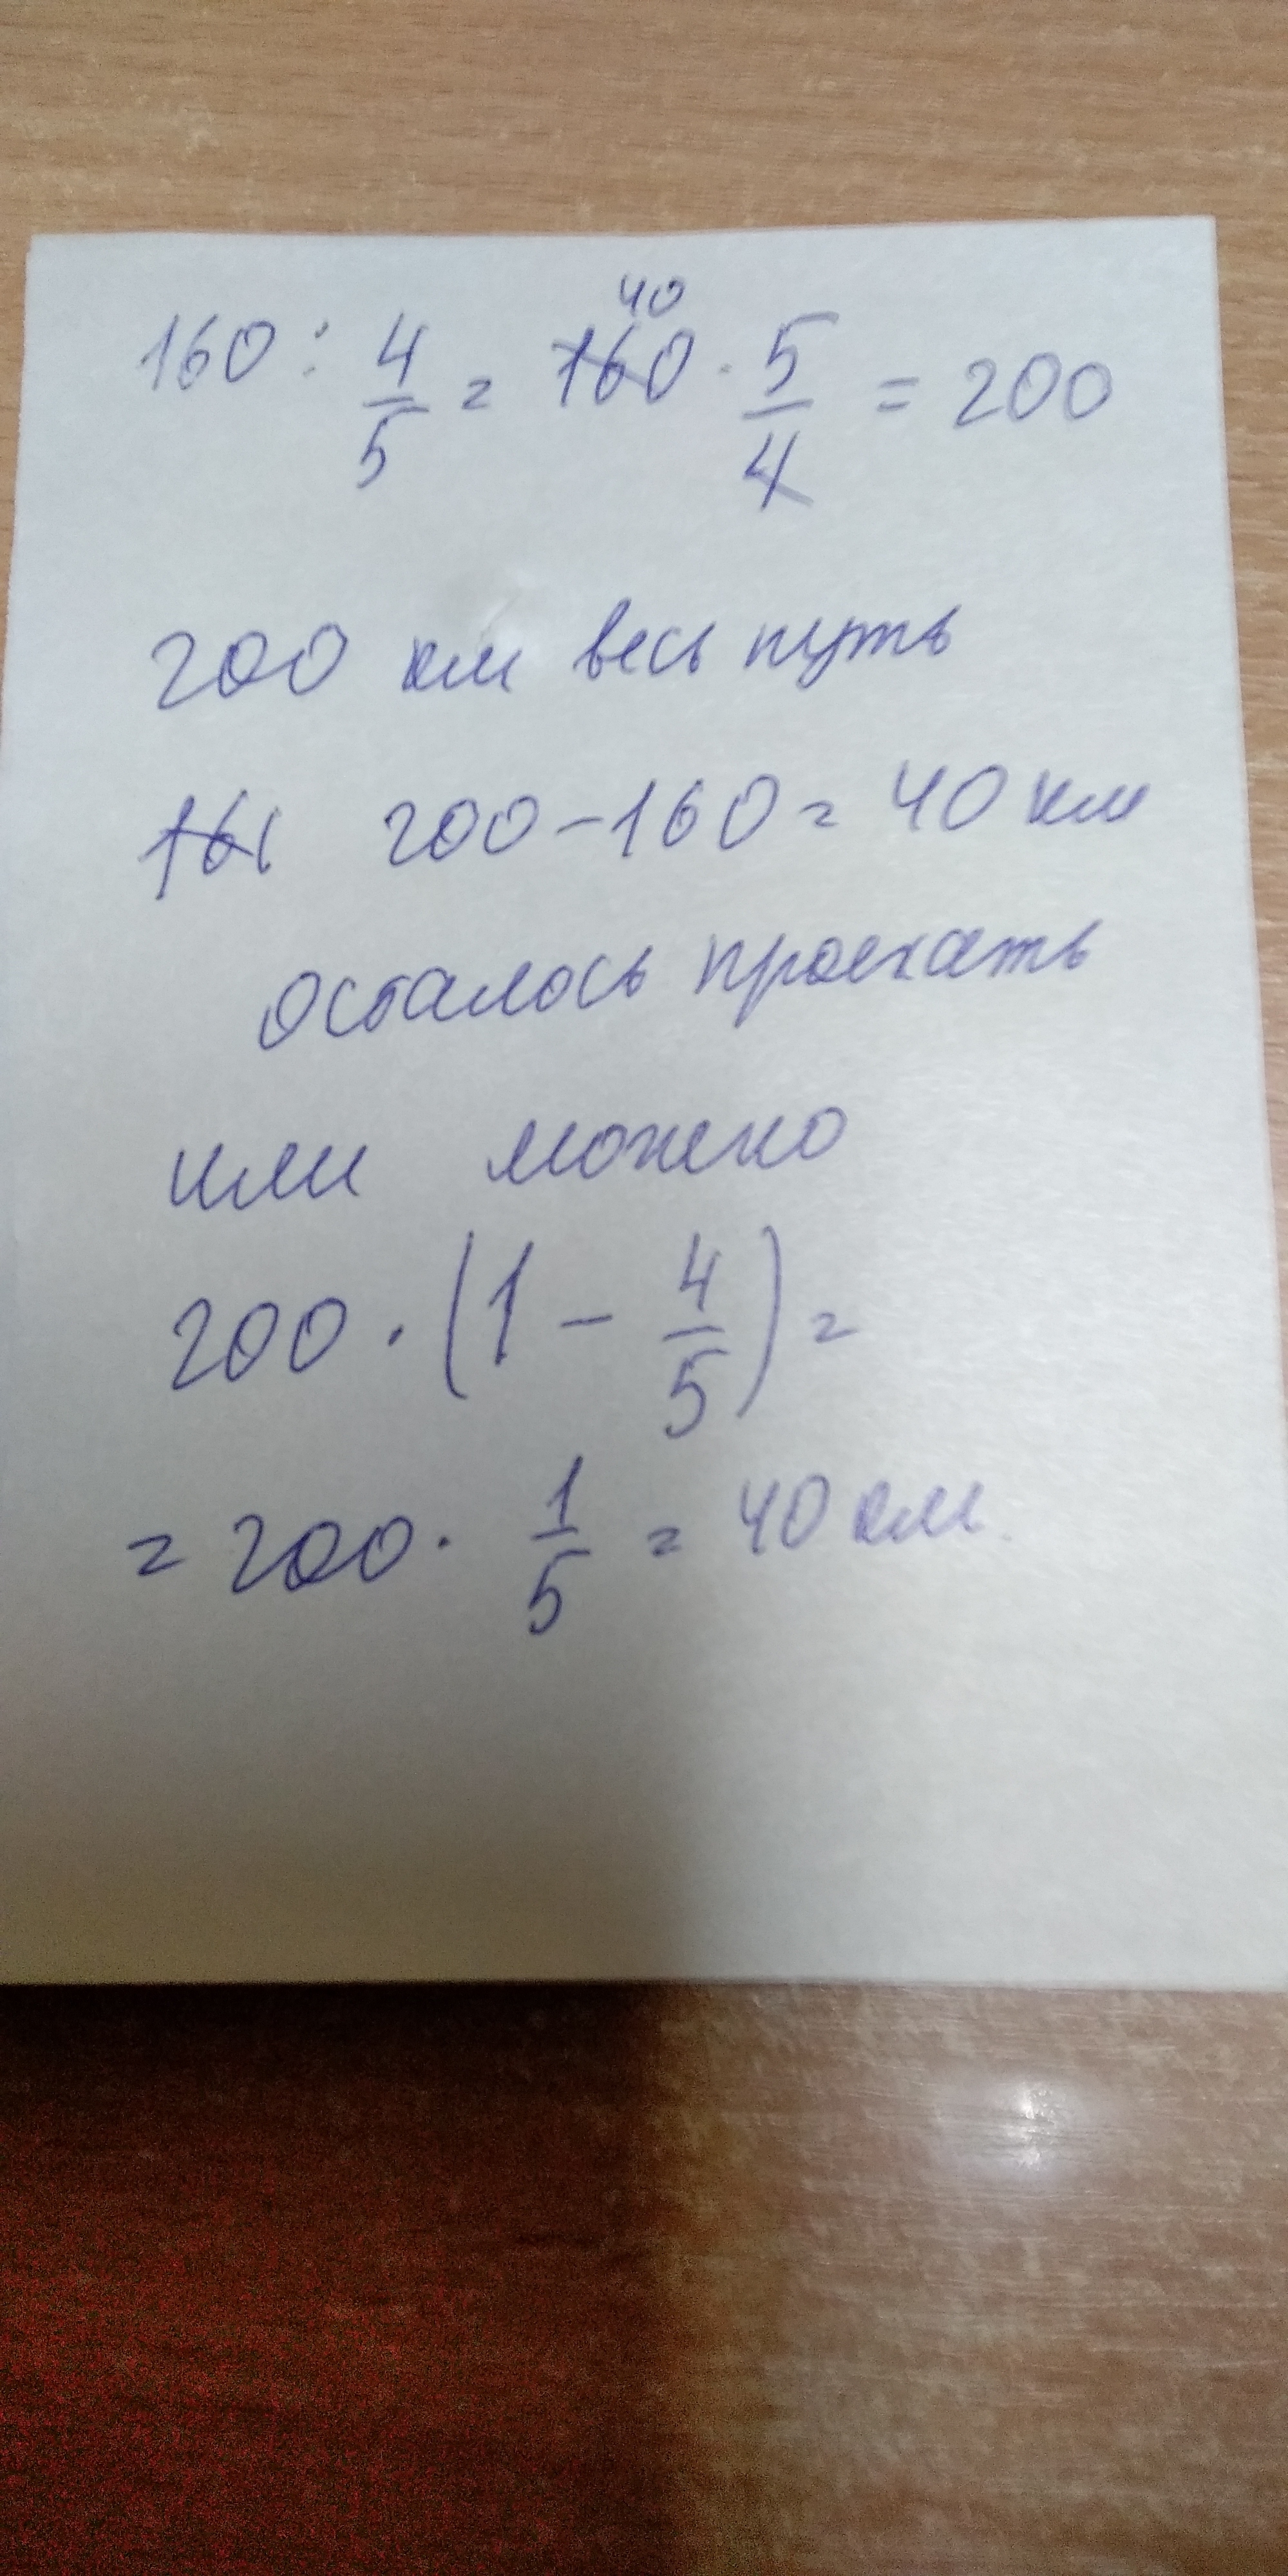 160 : 4/5 = 160 40 · 5/4 = 200
200 км весь путь
161 200-160=40 км
осталось проехать
или можно
200 · (1 - 4/5) =
= 200 · 1/5 = 40 км.